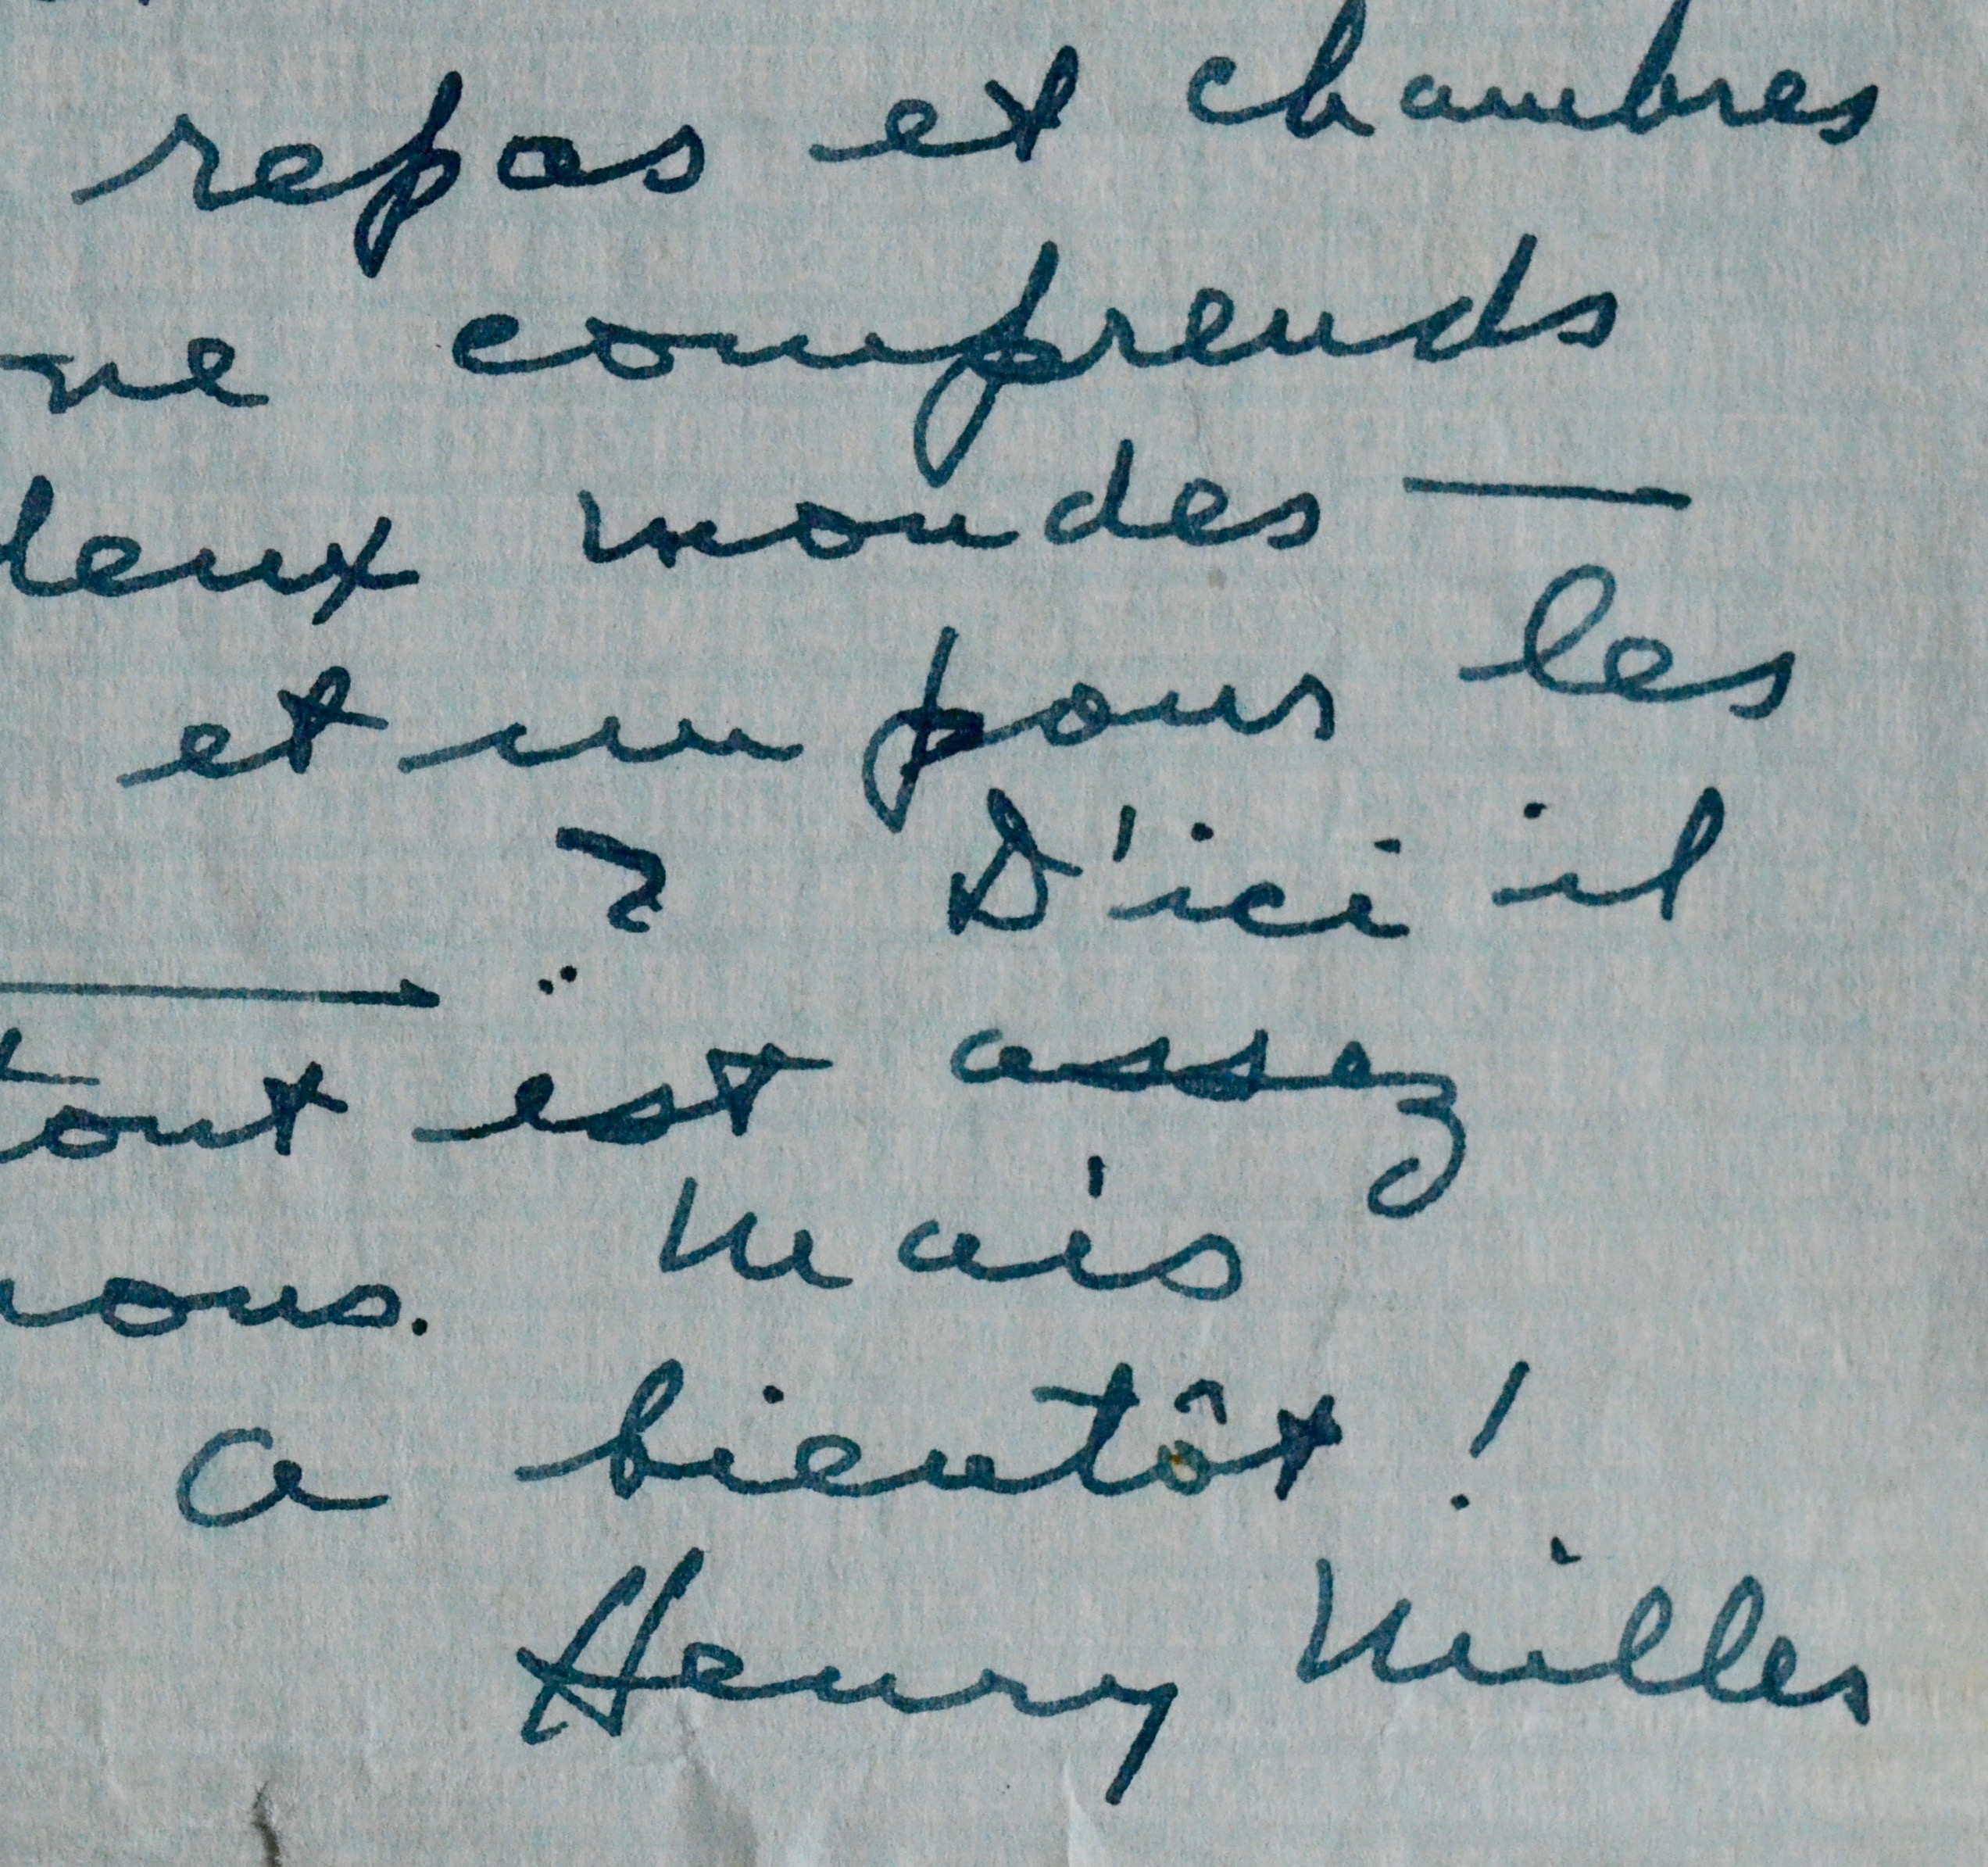 repas et chambres
ne comprends
deux mondes —
et un pour les
? D'ici il
tout est assez
nous. Mais
a bientôt !
Henry Miller